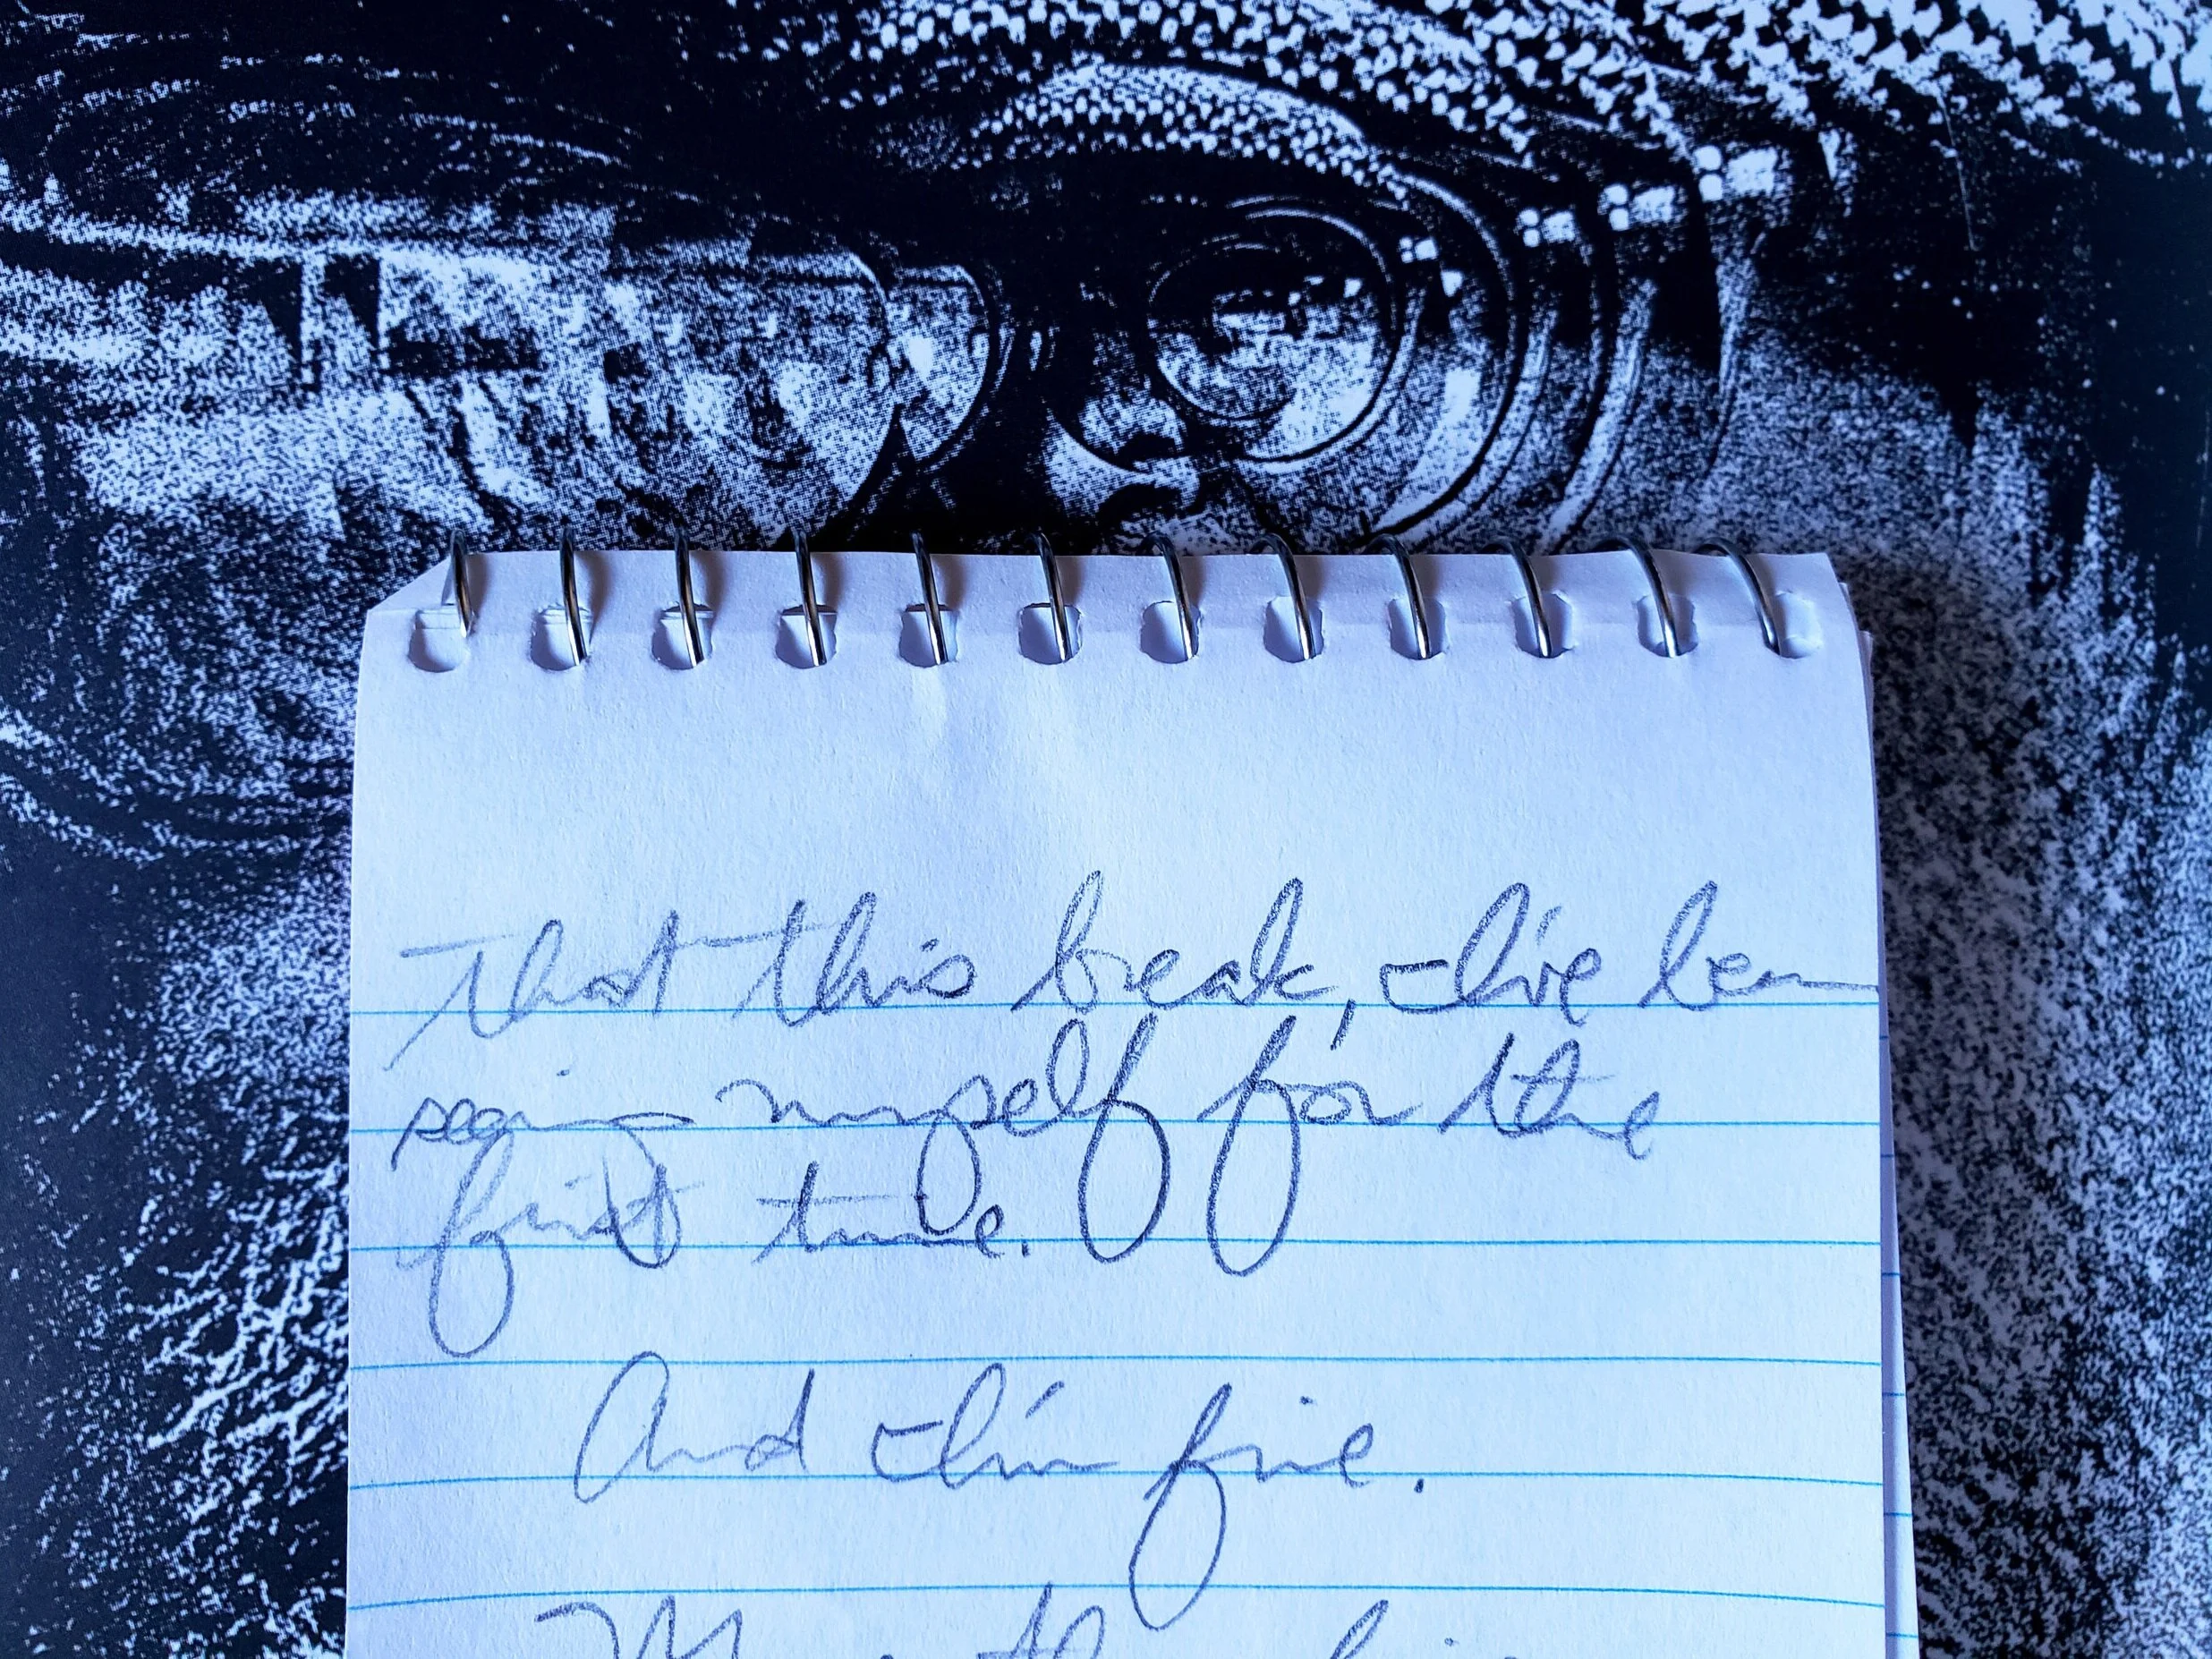 that this break, I've been
seeing myself for the
first time.
And I'm fine.